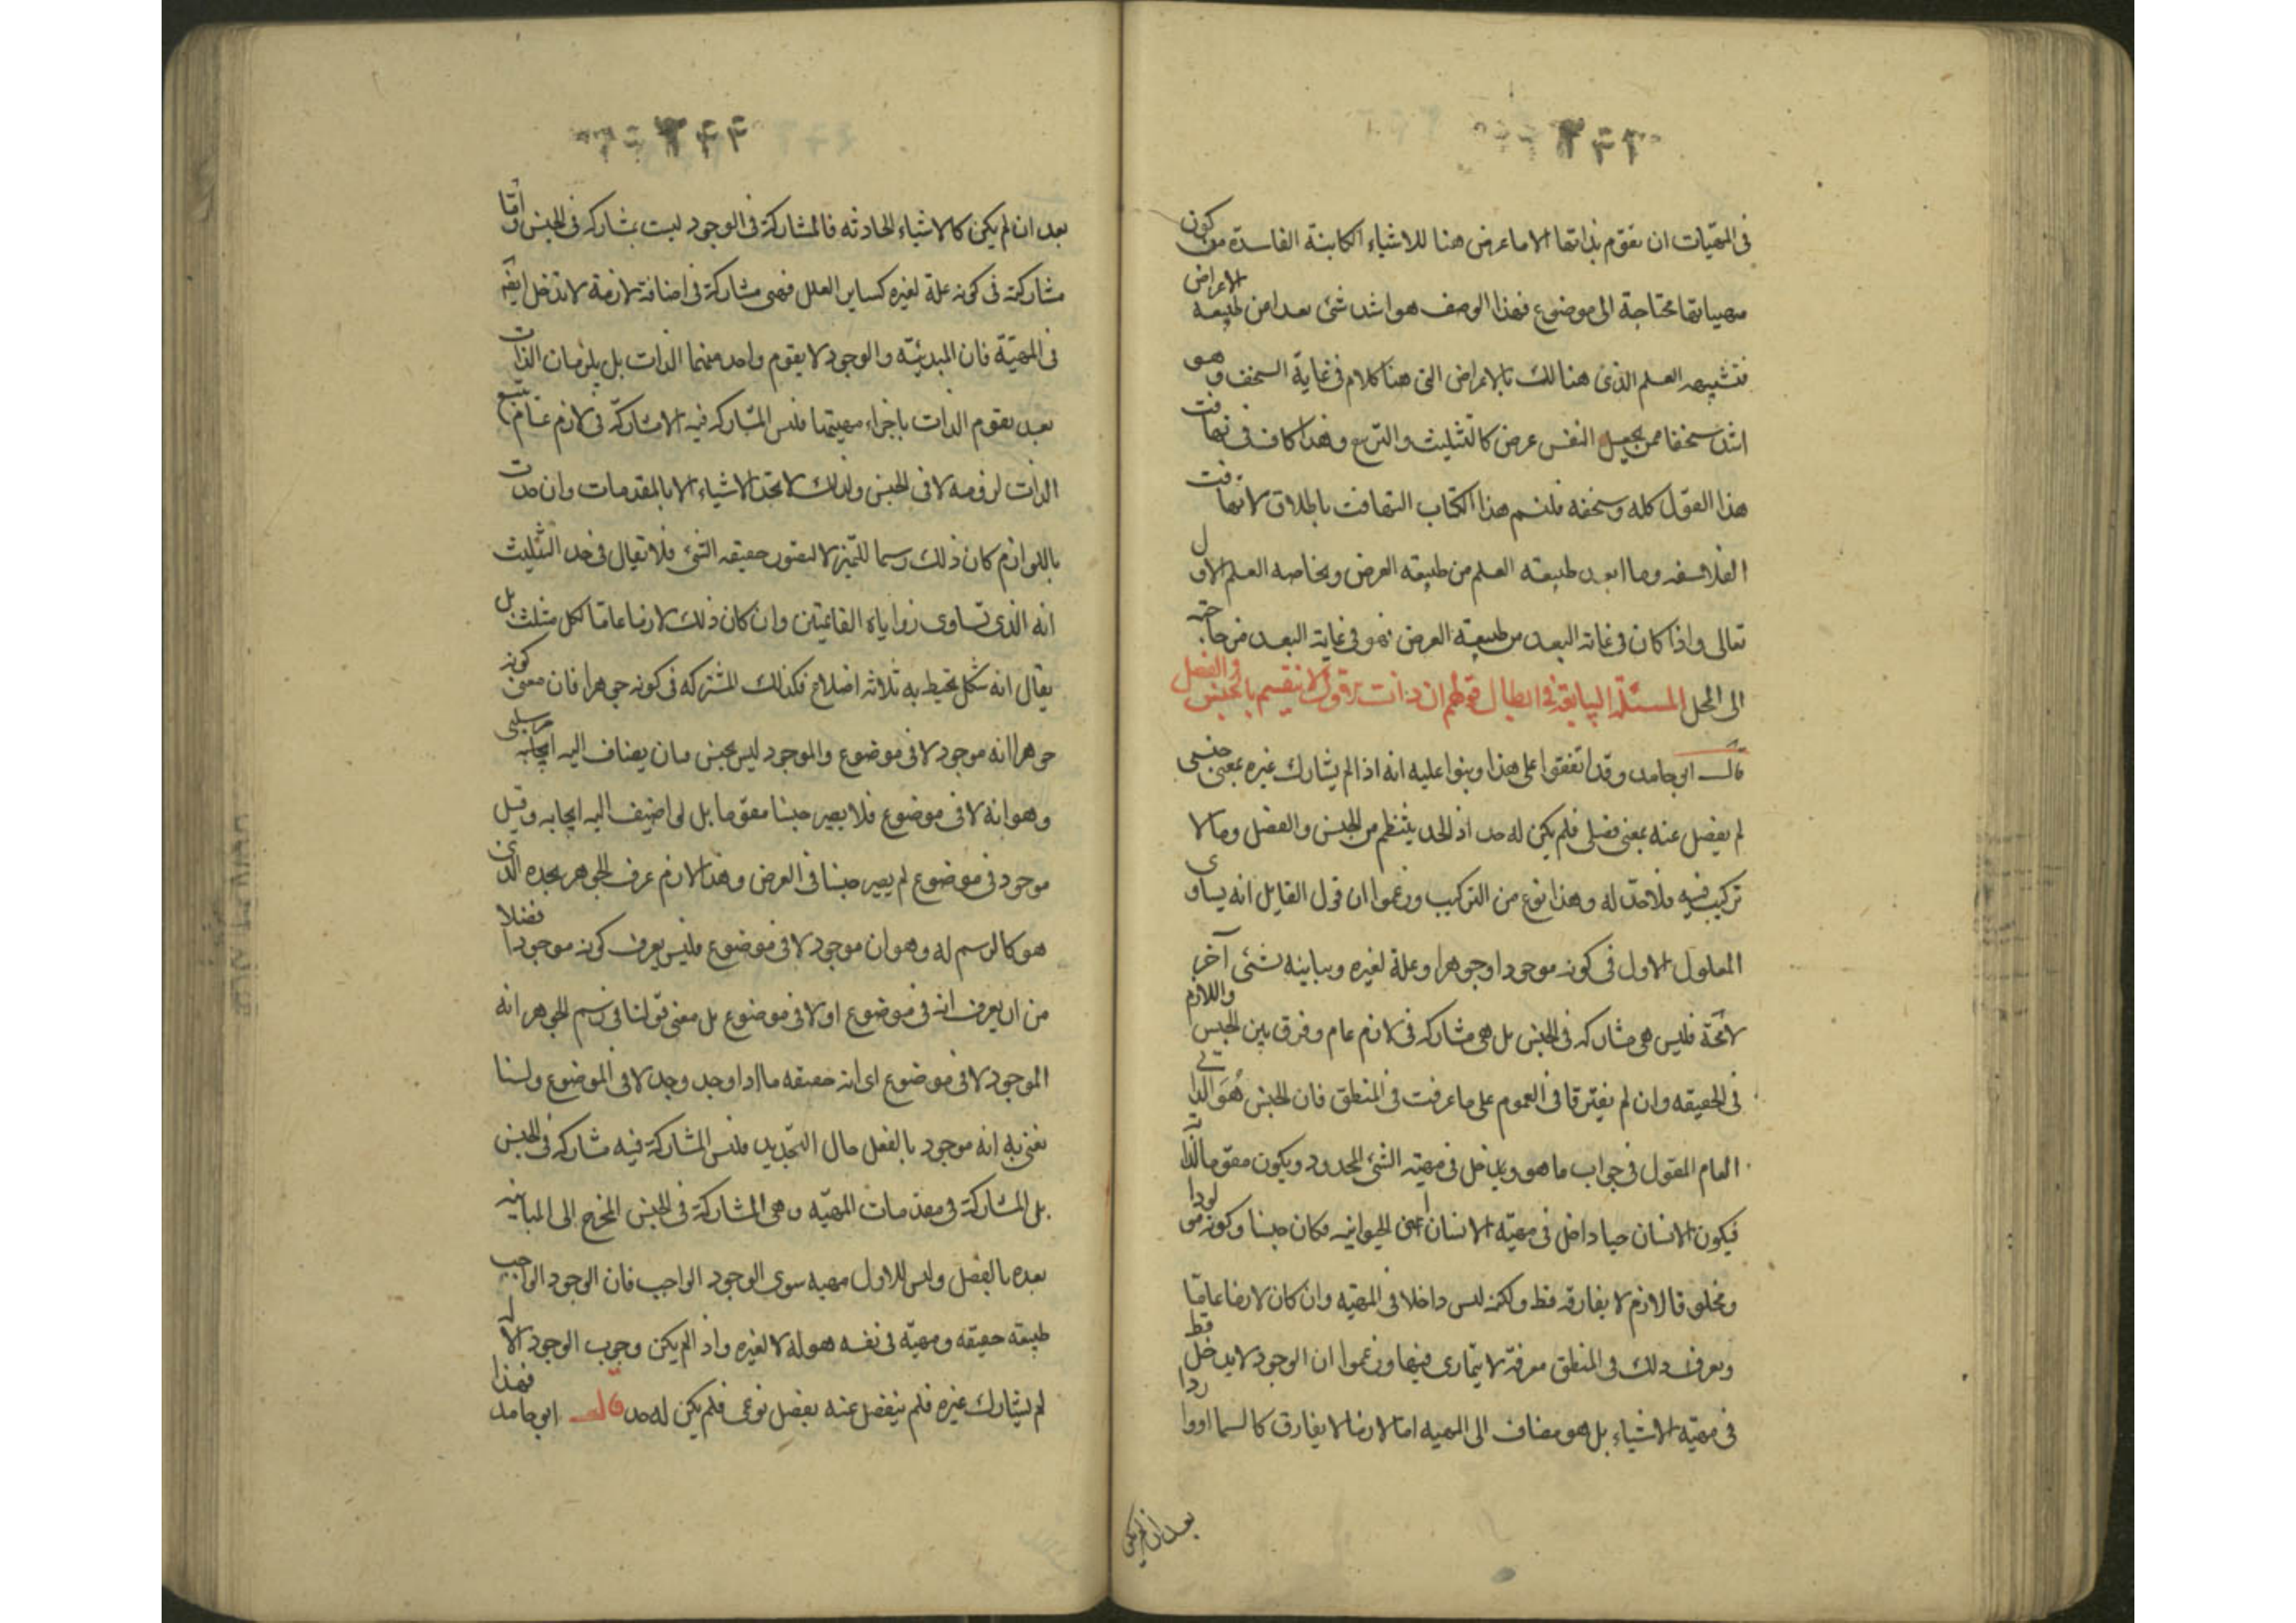 ٢٣٢
فى المهيّات ان تقوم بذاتها الا ما عرض هنا للاشياء الكاينة الفاسدة من كون
مهياتها محتاجة الى موضوع فهذا الوصف هو اشد شئ بعدا من طبيعه الاعراض
فتشبيهه العلم الذى هنالك بالاعراض التى هنا كلام فى غاية السخف وهو
اشد سخفا ممن يجعل النفس عرض كالتثليث والتربيع وهذا كاف فى تهافت
هذا القول كله وسخفه فلنسم هذا الكتاب التهافت باطلاق لا تهافت
الفلاسفه وما ابعد طبيعته العلم من طبيعته العرض وبخاصه العلم الاول
تعالى واذا كان فى غاية البعد من طبيعته العرض فهو فى غاية البعد من حاجته
الى المحل المسئلة السابعة فى ابطال قولهم ان ذات لا ينقسم بالجنس والفصل
قال ابو حامد وقد اتفقوا على هذا وبنوا عليه انه اذا لم يشارك غيره بمعنى جنسى
لم يفصل عنه بمعنى فصلى فلم يكن له حد اذ الحد ينتظم من الجنس والفصل وما لا
تركيب فيه فلا حدّ له وهذا نوع من التركيب وزعموا ان قول القايل انه يساوى
المعلول الاول فى كونه موجودا وجوهرا وعلة لغيره ويباينه بشئى آخر
لا محة فليس هى مشاركه فى الجنس بل هى مشاركه فى لازم عام وفرق بين الجنس واللازم
فى الحقيقه وان لم يفترقا فى العموم على ما عرفت فى المنطق فان الجنس هُوَ الذاتى
العام المقول فى جواب ما هو ويدخل فى مهيته الشئ المحدود ويكون مقوما لذاته
فيكون الانسان حيا داخل فى مهيّه الانسان اعنى الحيوانيه وكان جنسا وكونه مولودا
ومخلوقا لازم لا يفارقه قط ولكنه ليس داخلا فى المهيّه وان كان لازما عامّا
ويعرف ذلك فى المنطق معرفة لا يتمارى فيها وزعموا ان الوجود لا يدخل قط
فى مهيّه الاشياء بل هو مضاف الى المهيه اما لازما لا يفارق كالسما او واردا
بعد ان لم يكن
٢٣٣
بعد ان لم يكن كالاشياء الحادثه فالمشاركة فى الوجود ليست بمشاركه فى الجنس وأمّا
مشاركته فى كونه علة لغيره كساير العلل فهى مشاركة فى اضافة لازمة لا تدخل ايضه
فى المهيّة فان المبدئيّه والوجود لا يقوم واحد منهما الذات بل يلزمان الذات
بعد تقوم الذات باجزاء مهيتها فليس المشاركه فيه الا مشاركة فى لازم عام يتبع
الذات لزومه لا فى الجنس ولذلك لا تحد الاشياء الا بالمقدمات وان حدت
باللوازم كان ذلك رسما للتميز لا لتصور حقيقه الشئ فلا تقال فى حد التثليث
انه الذى تساوى زواياه القائمتين وان كان ذلك لازما عاما لكل مثلث بل
يقال انه شكل يحيط به ثلاثه اضلاع فكذلك المشتركه فى كونه جوهرا فان معنى كونه
جوهرا انه موجود لا فى موضوع والموجود ليس بجنس فان يضاف اليه سلبى
وهو انه لا فى موضوع فلا يصير جنسا مقوما بل لو اضيف اليه ايجابه وقيل
موجود فى موضوع لم يصير جنسا فى العرض وهذا لازم عرف الجوهر بحده الذى
هو كالرسم له وهو ان موجود لا فى موضوع فليس يعرف كونه موجودا فضلا
من ان يعرف انه فى موضوع او لا فى موضوع بل معنى قولنا فى رسم الجوهر انه
الموجود لا فى موضوع اى انه حقيقه ما اذا وجد وجد لا فى الموضوع ولسنا
نعنى به انه موجود بالفعل حال التحديد فليس المشاركة فيه مشاركه فى الجنس
بل المشاركة فى مقدمات المهيّه وهى المشاركة فى الجنس المخرج الى المباينه
بعده بالفصل وليس للاول مهيه سوى الوجود الواجب فان الوجود الواجب
طبيعته حقيقه ومهيّه فى نفسه هو له لا لغيره واذا لم يكن وجوب الوجود الا له
لم يشارك غيره فلم ينفصل عنه بفصل نوعى فلم يكن له حد قال ابو حامد فهذا